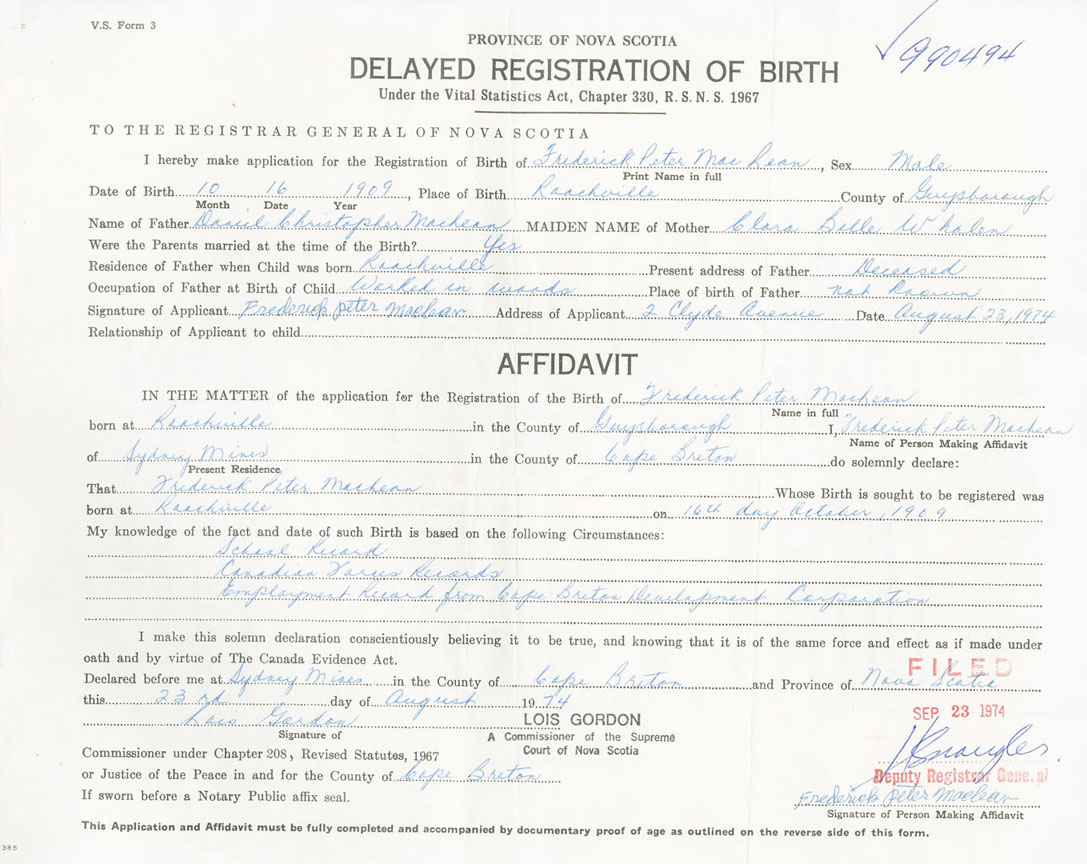 V.S. Form 3
990494
PROVINCE OF NOVA SCOTIA
DELAYED REGISTRATION OF BIRTH
Under the Vital Statistics Act, Chapter 330, R.S.N.S. 1967
TO THE REGISTRAR GENERAL OF NOVA SCOTIA
I hereby make application for the Registration of Birth of Frederick Peter MacLean, Sex Male
Print Name in full
Date of Birth 10 16 1909, Place of Birth Roachville County of Guysborough
Month Date Year
Name of Father Daniel Christopher MacLean MAIDEN NAME of Mother Clara Belle Whalen
Were the Parents married at the time of the Birth? Yes
Residence of Father when Child was born Roachville Present address of Father Deceased
Occupation of Father at Birth of Child Worked in woods Place of birth of Father not Known
Signature of Applicant Frederick Peter Maclean Address of Applicant 2 Clyde Avenue Date August 23, 1974
Relationship of Applicant to child
AFFIDAVIT
IN THE MATTER of the application for the Registration of the Birth of Frederick Peter MacLean
Name in full
born at Roachville in the County of Guysborough I, Frederick Peter MacLean
Name of Person Making Affidavit
of Sydney Mines in the County of Cape Breton do solemnly declare:
Present Residence
That Frederick Peter MacLean Whose Birth is sought to be registered was
born at Roachville on 16th day October, 1909
My knowledge of the fact and date of such Birth is based on the following Circumstances:
School Record
Canadian Forces Records
Employment Record from Cape Breton Development Corporation
I make this solemn declaration conscientiously believing it to be true, and knowing that it is of the same force and effect as if made under
oath and by virtue of The Canada Evidence Act.
FILED
Declared before me at Sydney Mines in the County of Cape Breton and Province of Nova Scotia
this 23rd day of August 1974
SEP 23 1974
Lois Gordon LOIS GORDON
Signature of A Commissioner of the Supreme
Court of Nova Scotia
Commissioner under Chapter 208, Revised Statutes, 1967
or Justice of the Peace in and for the County of Cape Breton
Deputy Registrar General
If sworn before a Notary Public affix seal.
Frederick Peter Maclean
Signature of Person Making Affidavit
This Application and Affidavit must be fully completed and accompanied by documentary proof of age as outlined on the reverse side of this form.
385